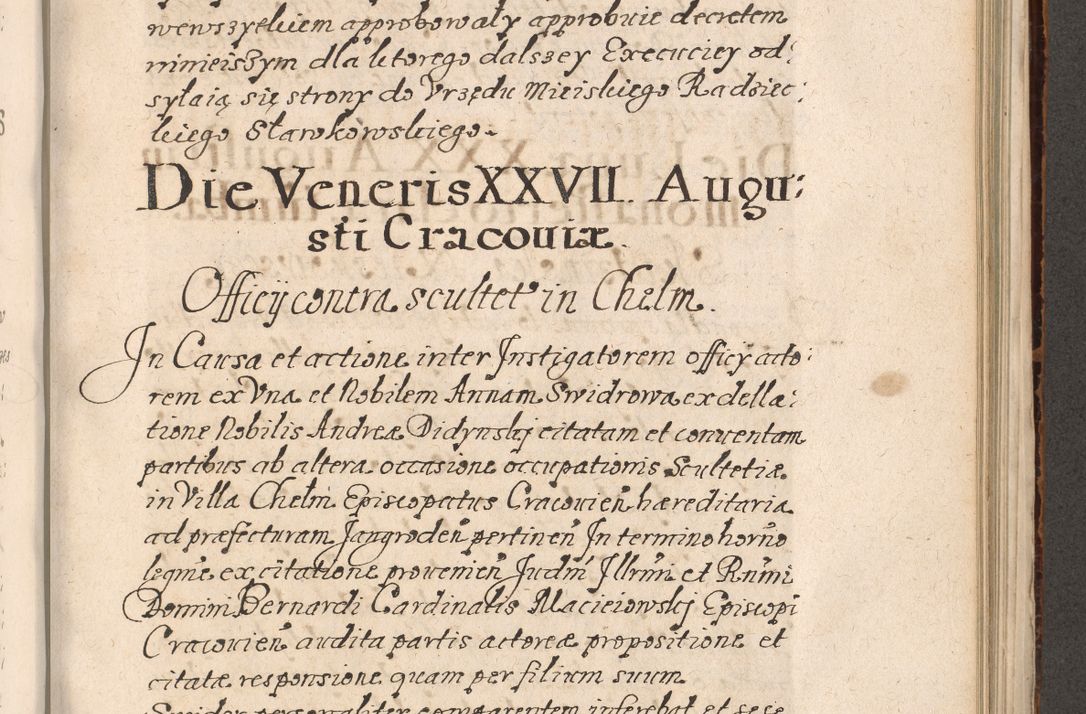 wewszytkiem approbowały approbuie decretem
nimieiszym dla ktorego dalszey Execuciey od:
syłaią się strony do Vrzędu Mieiskiego Radziec:
kiego Sławkowskiego.
Die Veneris XXVII. Augu:
sti Cracouiæ.
Officij contra scultet in Chelm.
In Causa et actione inter Instigatorem officij acto:
rem ex Vna et Nobilem Annam Swidrowa ex della:
tione Nobilis Andreæ Didynskj citatam et conuentam
partibus ab altera occasione occupationis Scultetiæ
in Villa Chelm Episcopatus Cracouien hæreditaria
ad præfecturam Jangroden pertinen In termino horno
legme ex citatione prouenien Judm Illrmi et Rnmi
Domini Bernardi Cardinalis Macieiowskj Episcopi
Cracouien audita partis actoreæ propositione et
citatæ responsione quam per filium suum
Swider personaliter comparentem inferebat et sese